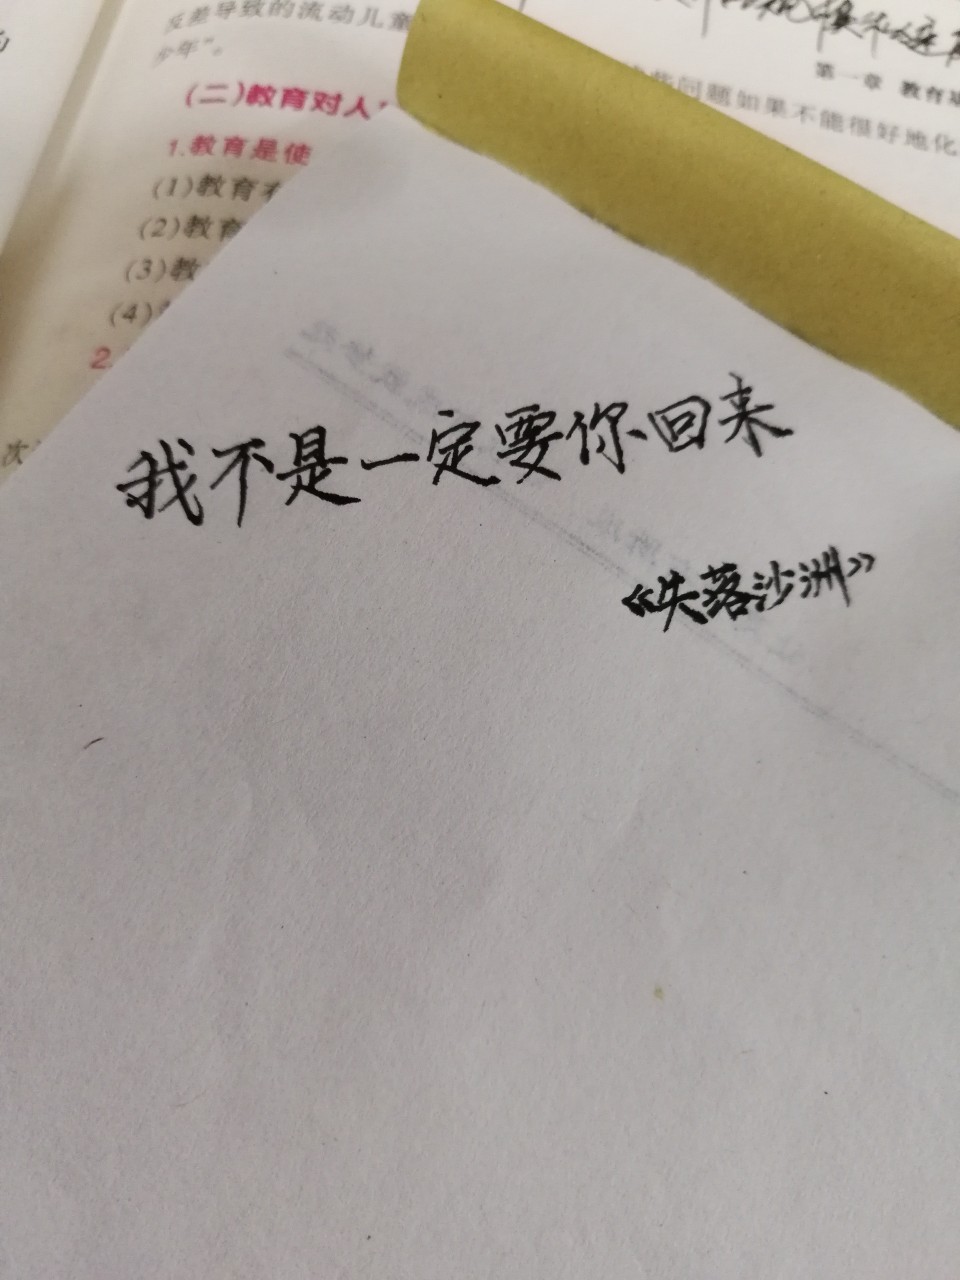 反差导致的流动儿童
少年”。
(二)教育对人
1.教育是使
(1)教育
(2)教育
(3)教
(4)
2.
次
第一章 教育基
问题如果不能很好地化
我不是一定要你回来
《失落沙洲》